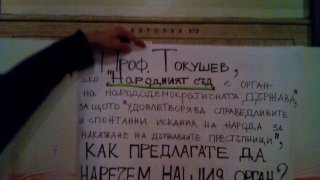 Проф. Токушев,
ако "Народният съд е орган
на народодемократичната държава,
защото "удовлетворява справедливите
и спонтанни искания на народа за
наказание на държавните престъпници",
как предлагате да
наречем нашия орган?